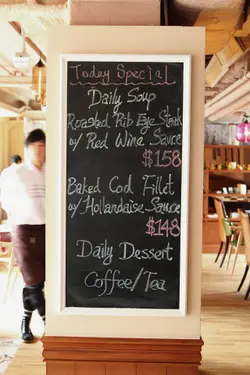 Today Special
Daily Soup
Roasted Rib Eye Steak
w/ Red Wine Sauce
$158
Baked Cod Fillet
w/ Hollandaise Sauce
$148
Daily Dessert
Coffee/Tea